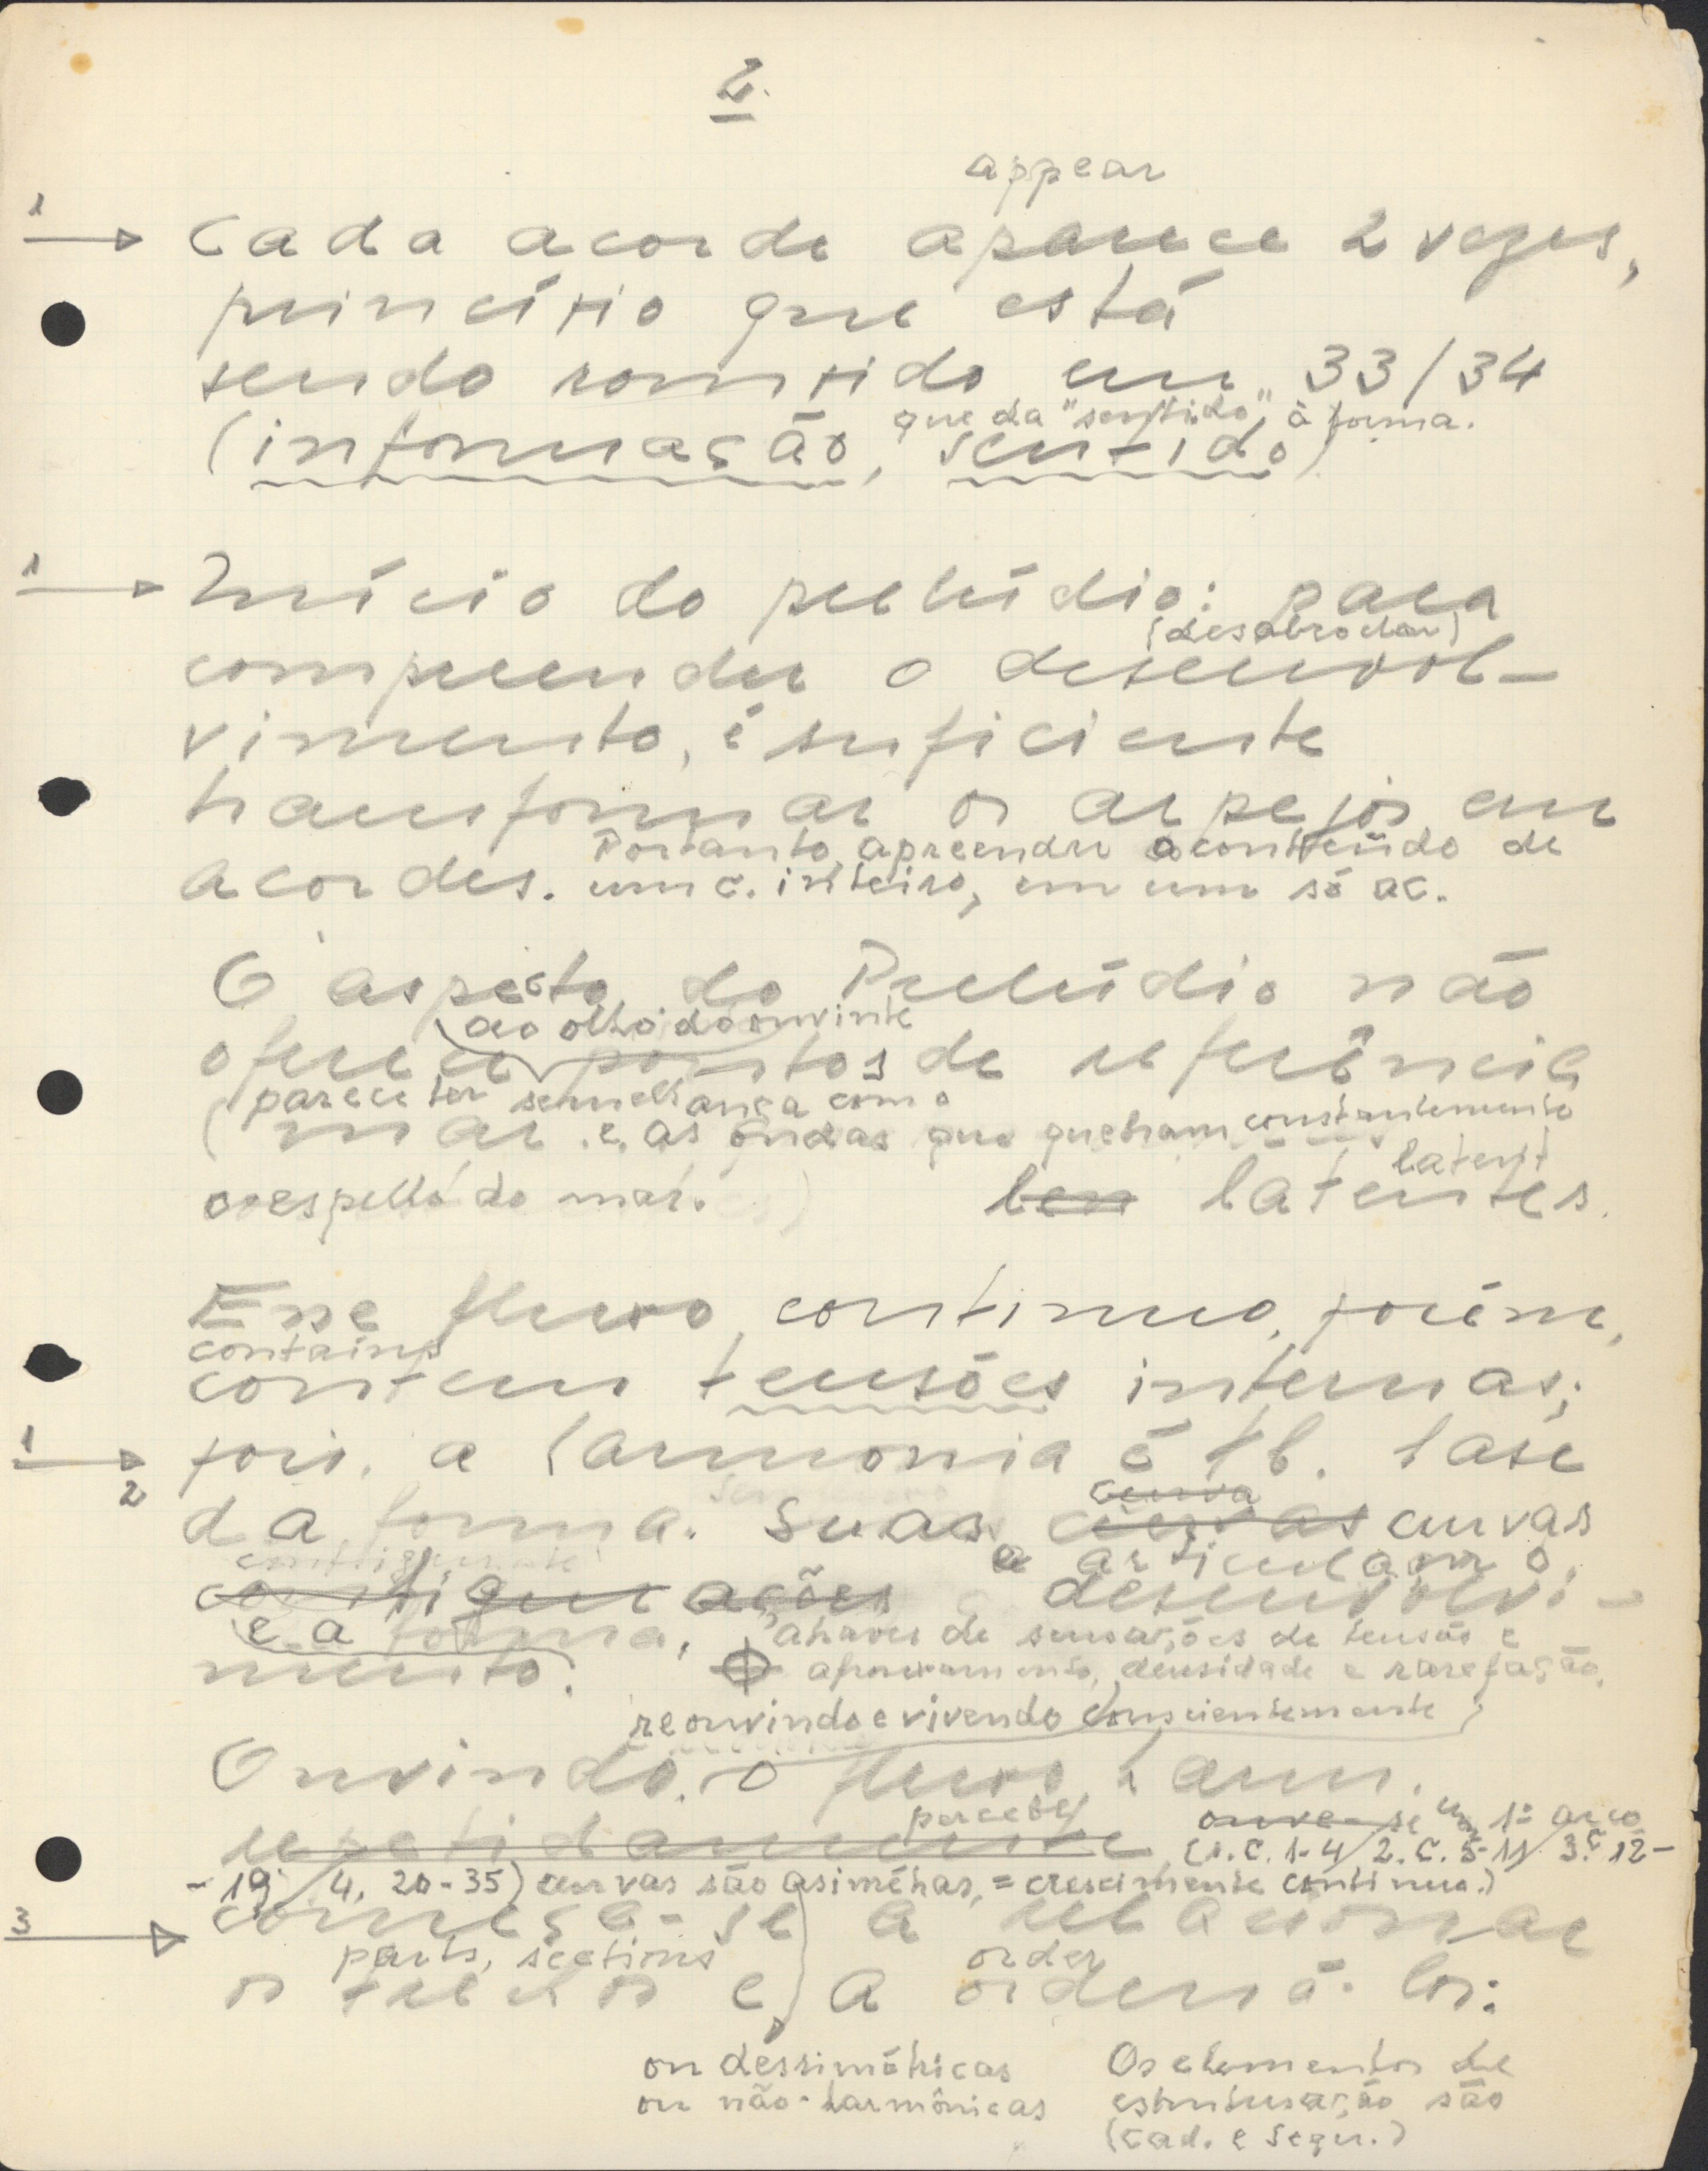 2.
appear
1 → Cada acorde aparece 2 vezes,
princípio que está
sendo rompido em 33/34
que da "sentido" à forma.
(informação, sentido)
1 → Início do prelúdio: para
(desabrochar)
compreender o desenvol-
vimento, é suficiente
transformar os arpejos em
Portanto, apreender o conteúdo de
acordes. um c. inteiro, em um só ac.
O aspecto do Prelúdio não
ao olho do ouvinte
oferece pontos de referência
parece ter semelhança com o
(mar e as ondas que quebram constantemente
latent
o espelho do mar. ) latentes.
Esse fluxo contínuo, porém,
contains
contem tensões internas;
1 → 2 pois, a harmonia é tb. base
curva
da forma. Suas curvas
e articulam o
configurações desenvolvi-
e a forma, "através de sensações de tensão e
mento. afrouxamento, densidade e rarefação.
reouvindo e vivendo conscientemente
Ouvindo o fluxo harm.
percebe ouve-se um 1º arco
repetidamente (1. C. 1-4 / 2. C. 5-11 / 3. C 12-
-19 / 4. 20-35) curvas são asimétras, = crescimento contínuo.)
3 → começa-se a relacionar
parts, sections order
os trechos e a ordená-los:
ou dessimétricas
ou não-harmônicas
Os elementos de
estruturação são
(cad. e sequ.)